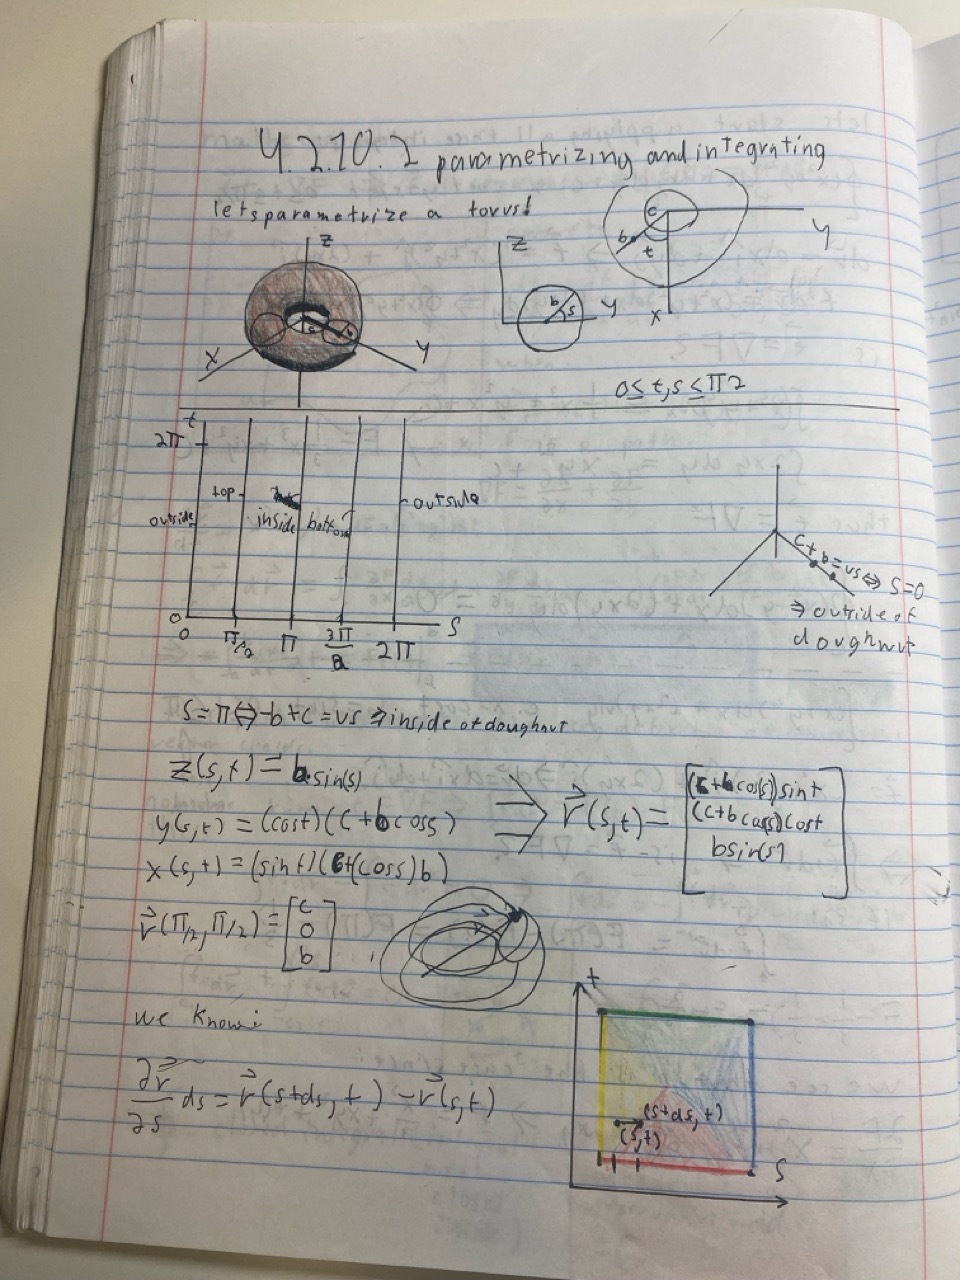 4.2.10.2 parametrizing and integrating
lets parametrize a torus!
z
x
y
c
b
z
y
b
s
c
b
t
y
x
0≤t,s≤π2
t
2π
outside
top
inside
bottom
outside
0
0
π/2
π
3π/2
2π
s
c+b=vs⇔s=0
⇒outside of
doughnut
s=π⇔-b+c=vs⇒inside of doughnut
z(s,t)=b sin(s)
y(s,t)=(cost)(c+bcoss)
x(s,t)=(sint)(c+(coss)b)
r⃗(s,t)=[(c+bcos(s))sint
(c+bcos(s))cost
bsin(s)]
r⃗(π/2,π/2)=[c
0
b]
we know:
∂r⃗/∂s ds=r⃗(s+ds,t)-r⃗(s,t)
t
(s+ds,t)
(s,t)
s